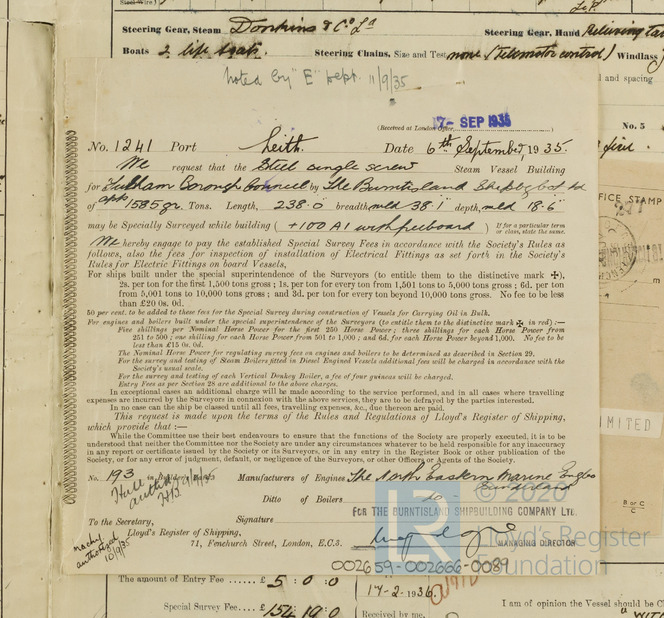 Steel Wire)
Steering Gear, Steam Donkins & Co Ld Steering Gear, Hand Relieving
Boats 2 life boats Steering Chains, Size and Test none (Telemotor control) Windlass
Noted by "E" Dept. 11/9/35
and spacing
(Received at London Office, 7- SEP 1935
No. 5
No. 1241 Port Leith Date 6th September, 1935.
We request that the Steel single screw Steam Vessel Building
for Fulham Borough Council by The Burntisland Shipbg Co Ld
of appr 1585 gr. Tons. Length, 238.0 breadth mld 38'1" depth, mld 18'6"
may be Specially Surveyed while building ( +100 A1 with freeboard ) If for a particular term or class, state the same.
We hereby engage to pay the established Special Survey Fees in accordance with the Society's Rules as
follows, also the fees for inspection of installation of Electrical Fittings as set forth in the Society's
Rules for Electric Fittings on board Vessels,
For ships built under the special superintendence of the Surveyors (to entitle them to the distinctive mark ✠),
2s. per ton for the first 1,500 tons gross; 1s. per ton for every ton from 1,501 tons to 5,000 tons gross; 6d. per ton
from 5,001 tons to 10,000 tons gross; and 3d. per ton for every ton beyond 10,000 tons gross. No fee to be less
than £20 0s. 0d.
50 per cent. to be added to these fees for the Special Survey during construction of Vessels for Carrying Oil in Bulk.
For engines and boilers built under the special superintendence of the Surveyors (to entitle them to the distinctive mark ✠ in red) :—
Five shillings per Nominal Horse Power for the first 250 Horse Power; three shillings for each Horse Power from
251 to 500; one shilling for each Horse Power from 501 to 1,000; and 6d. for each Horse Power beyond 1,000. No fee to be
less than £15 0s. 0d.
The Nominal Horse Power for regulating survey fees on engines and boilers to be determined as described in Section 29.
For the survey and testing of Steam Boilers fitted in Diesel Engined Vessels additional fees will be charged in accordance with the
Society's usual scale.
For the survey and testing of each Vertical Donkey Boiler, a fee of four guineas will be charged.
Entry Fees as per Section 28 are additional to the above charges.
In exceptional cases an additional charge will be made according to the service performed, and in all cases where travelling
expenses are incurred by the Surveyors in connexion with the above services, they are to be defrayed by the parties interested.
In no case can the ship be classed until all fees, travelling expenses, &c., due thereon are paid.
This request is made upon the terms of the Rules and Regulations of Lloyd's Register of Shipping,
which provide that :—
While the Committee use their best endeavours to ensure that the functions of the Society are properly executed, it is to be
understood that neither the Committee nor the Society are under any circumstances whatever to be held responsible for any inaccuracy
in any report or certificate issued by the Society or its Surveyors, or in any entry in the Register Book or other publication of the
Society, or for any error of judgment, default, or negligence of the Surveyors, or other Officers or Agents of the Society.
No. 193 in Builders' Manufacturers of Engines The North Eastern Marine Engbg Co
Sunderland
Hull
Ditto of Boilers do
FOR THE BURNTISLAND SHIPBUILDING COMPANY LTD.
To the Secretary, Signature
Lloyd's Register of Shipping,
71, Fenchurch Street, London, E.C.3.
MANAGING DIRECTOR
machy
authorized
10/9/35
OFFICE STAMP
LIMITED
B or C/C
LR © 2020
Lloyd's Register
Foundation
002659-002666-0089
The amount of Entry Fee ...... £ 5 : 0 : 0
17-2-1936
Special Survey Fee.... £ 154 19 0
Received by me,
I am of opinion the Vessel should be